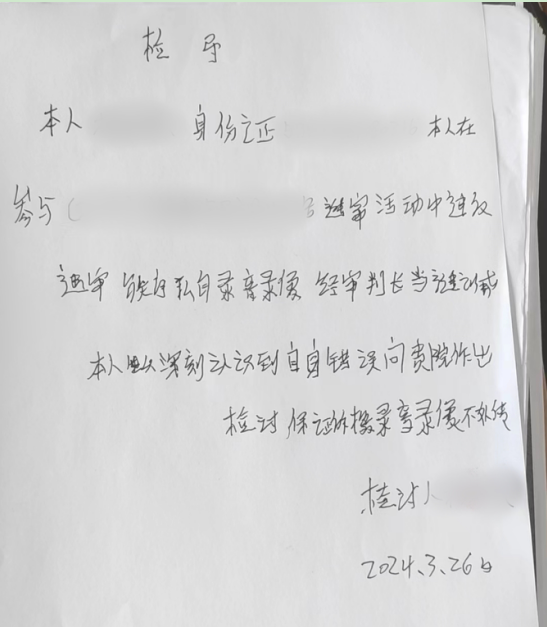 检 讨
本人 身份证 本人在
参与( 庭审活动中违反
庭审 私自录音录像 经审判长当庭训诫
本人 深刻认识到自身错误向贵院作出
检讨,保证 录音录像不外传
检讨人
2024.3.26日